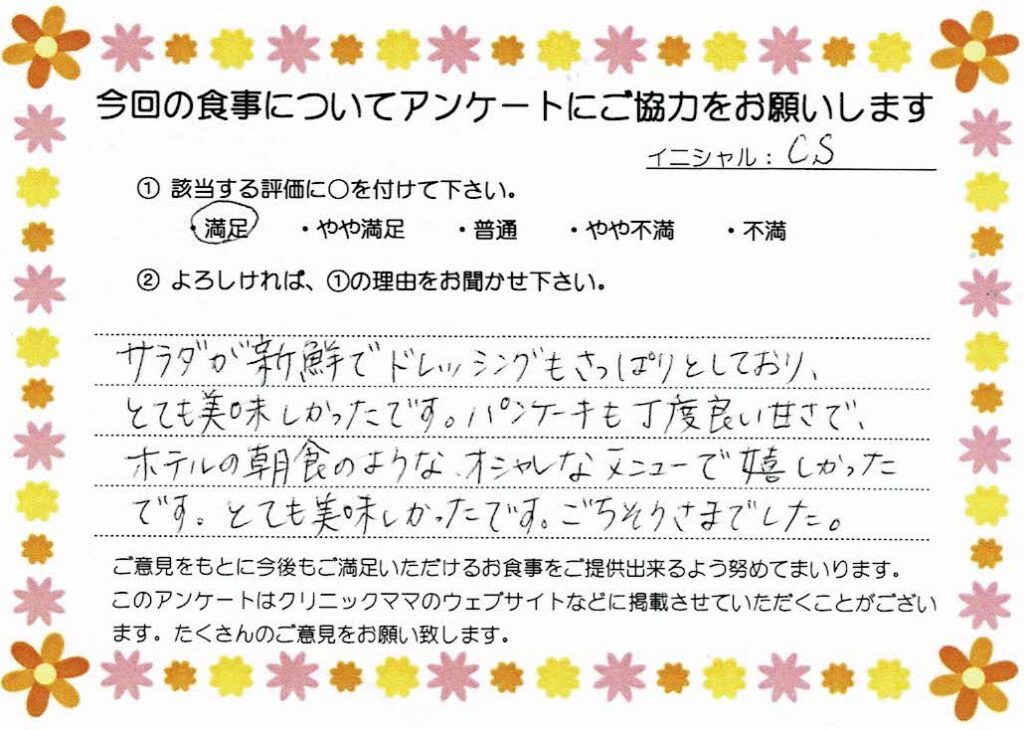 今回の食事についてアンケートにご協力をお願いします
イニシャル： C.S
① 該当する評価に○を付けて下さい。
・満足 ・やや満足 ・普通 ・やや不満 ・不満
② よろしければ、①の理由をお聞かせ下さい。
サラダが新鮮でドレッシングもさっぱりとしており、
とても美味しかったです。パンケーキも丁度良い甘さで、
ホテルの朝食のような、オシャレなメニューで嬉しかった
です。とても美味しかったです。ごちそうさまでした。
ご意見をもとに今後もご満足いただけるお食事をご提供出来るよう努めてまいります。
このアンケートはクリニックママのウェブサイトなどに掲載させていただくことがござい
ます。たくさんのご意見をお願い致します。